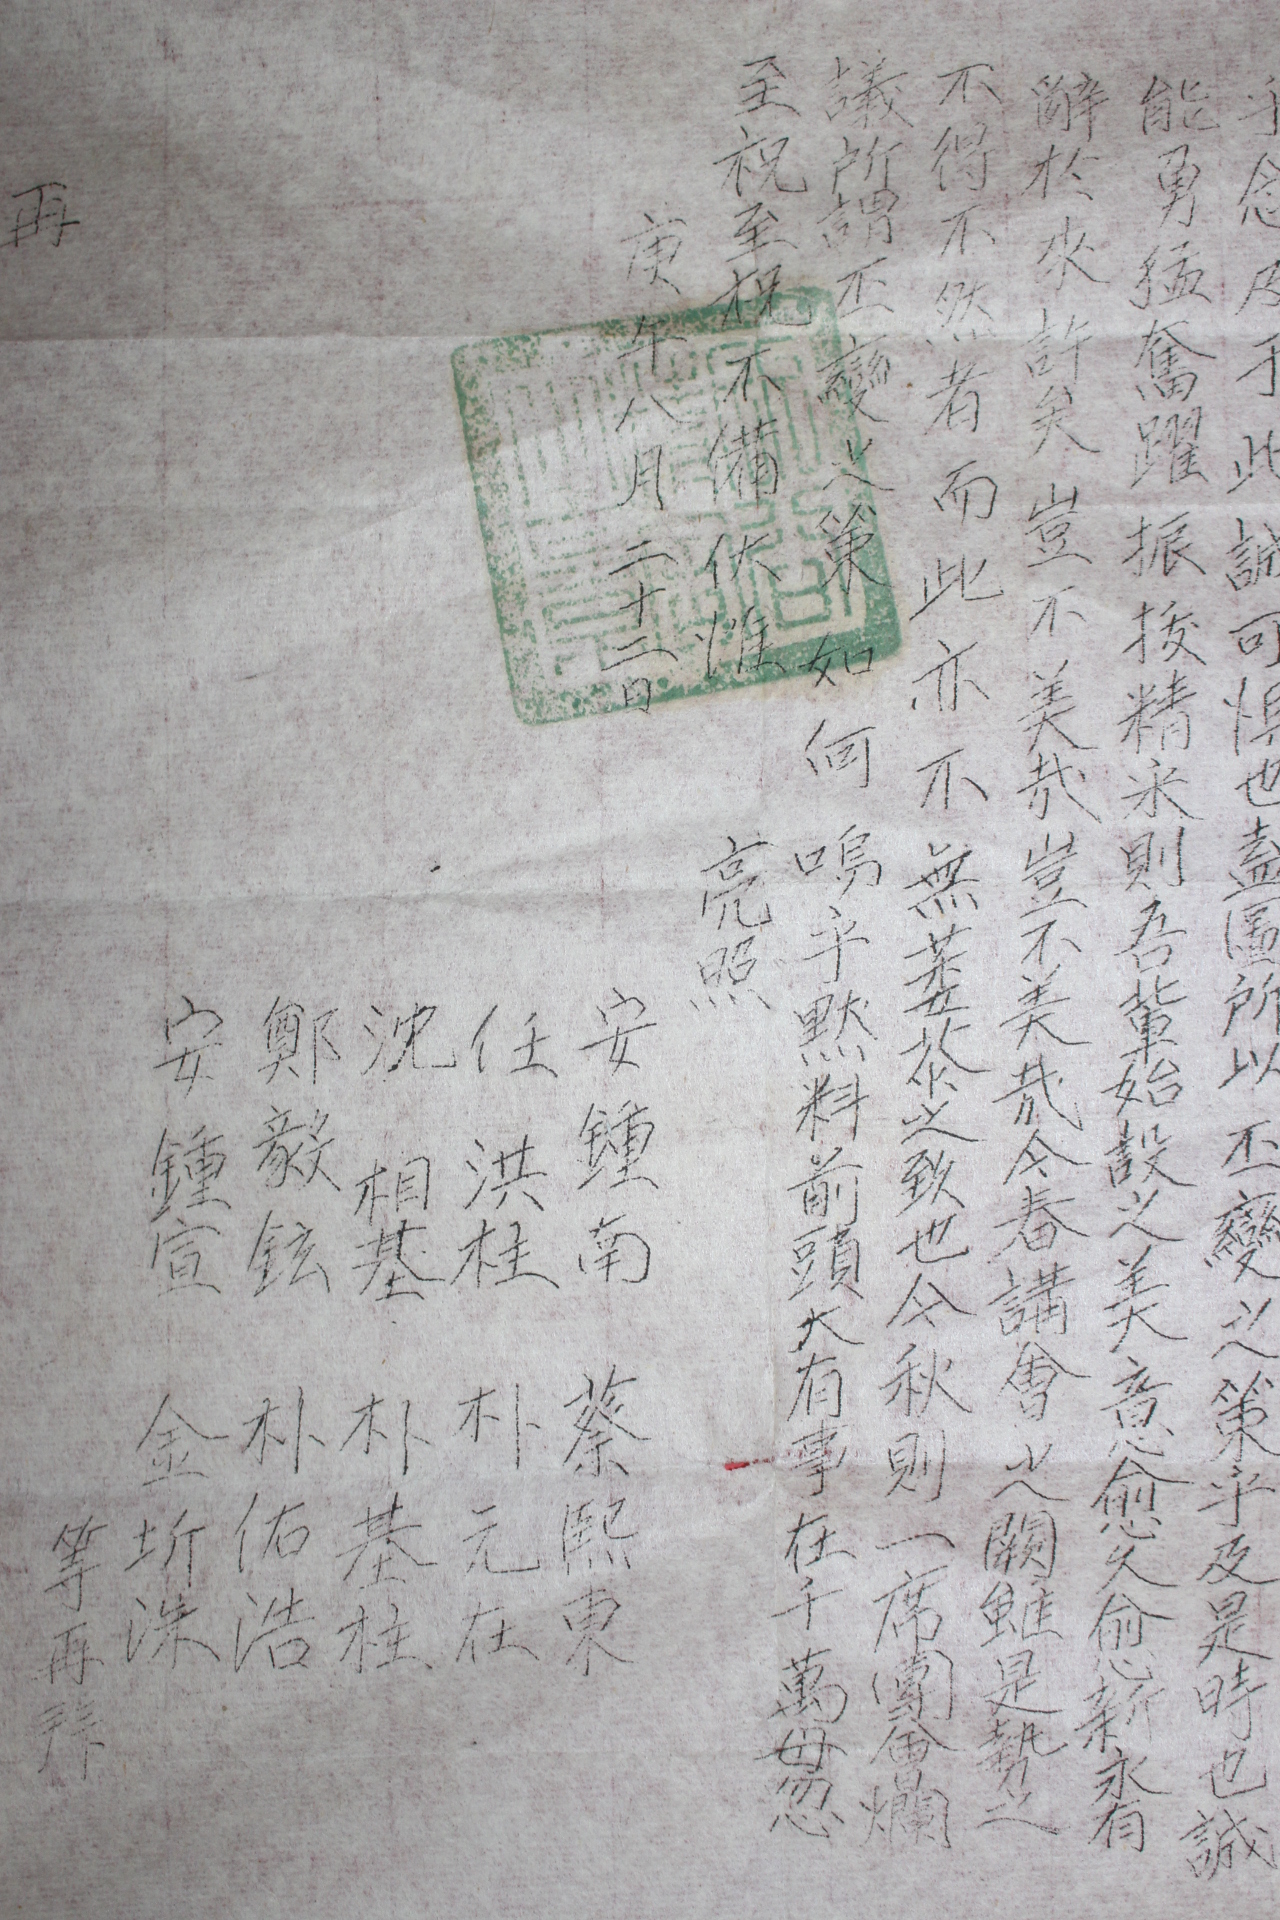 乎念及于此誠可惧也盍圖所以丕變之策乎及是時也誠
能勇猛奮躍振拔精采則吾輩始設之美意愈愈久愈新永有
辭於來許矣豈不美哉豈不美哉今春講會之闕雖是勢之
不得不然者而此亦不無萎茶之致也今秋則一席團會爛
議所謂丕變之策如何嗚乎默料前頭大有事在千萬毋忽
至祝至祝不備伏惟
亮照
庚午八月二十二日
安鍾南 蔡熙東
任洪柱 朴元在
沈相基 朴基柱
鄭毅鉉 朴佑浩
安鍾宣 金圻洙
等再拜
再